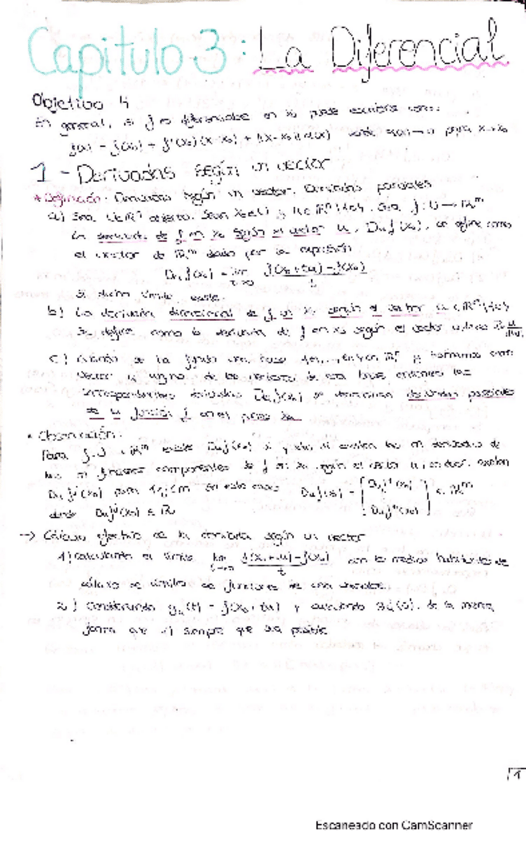 Capitulo 3: La Diferencial
Objetivo 4
En general, si f es diferenciable en x₀ puede escribirse como:
f(x) = f(x₀) + f'(x₀)(x-x₀) + ||x-x₀|| para x→x₀
1 - Derivadas según un vector
* Definición. Derivadas según un vector. Derivadas parciales
a) Sea U⊂ℝⁿ abierto. Sean x₀∈U y u∈ℝⁿ\{0}. Sea f: U → ℝᵐ
La derivada de f en x₀ según el vector u, Duf(x₀), se define como
el vector de ℝᵐ dado por la expresión
Duf(x₀) = lim t→0 f(x₀+tu)-f(x₀) / t
si dicho límite existe.
b) La derivada direccional de f en x₀ según el vector u∈ℝⁿ\{0}
se define como la derivada de f en x₀ según el vector unitario u/||u||
c) Cuando se fija una base en ℝⁿ y tomamos como
vector u alguno de los vectores de esta base, entonces las
correspondientes derivadas se denominan derivadas parciales
de la función f en el punto x₀
* Observación.
Para existe Duf(x₀) si y sólo si existen las m derivadas de
las m funciones componentes de f en x₀ según el vector u, es decir, existen
En este caso Duf(x₀) = ∈ ℝᵐ
donde ∈ ℝ
→ Cálculo efectivo de la derivada según un vector
1) Calculando el límite lim t→0 f(x₀+tu)-f(x₀) / t con los medios habituales de
cálculo de límites de funciones de una variable.
2) Construyendo gᵤ(t) = f(x₀+tu) y calculando g'ᵤ(0), de la misma
forma que 1) siempre que sea posible
1
Escaneado con CamScanner